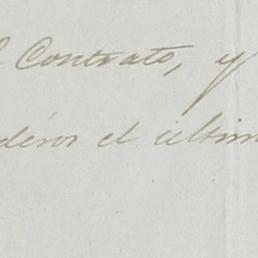 l Contrato, y
deros el ultim